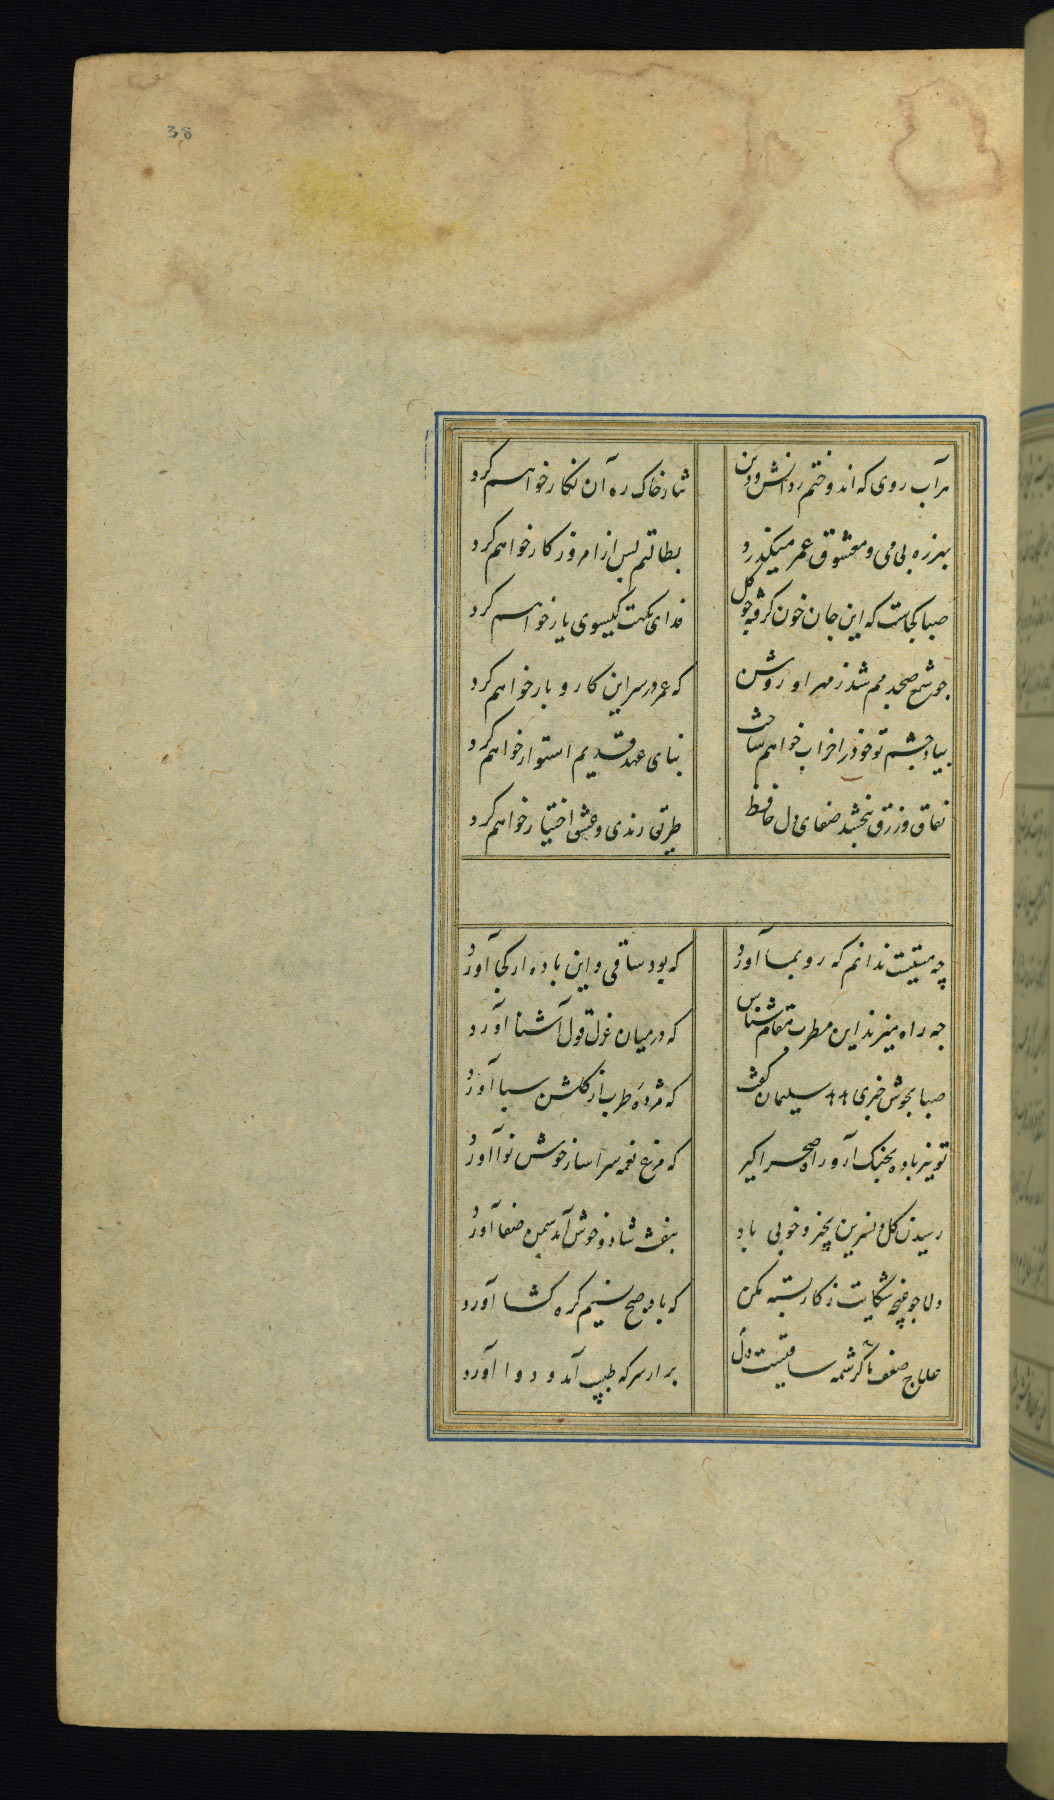 38
هر آب روی که اندوختم ز دانش و دین نثار خاک ره آن نگار خواهم کرد
بهرزه بی می و معشوق عمر میگذرد بطالتم بس از امروز کار خواهم کرد
صبا کجاست که این جان خون گرفته چو گل فدای نکهت گیسوی یار خواهم کرد
چو شمع صبحدمم شد ز مهر او روشن که عمر در سر این کار و بار خواهم کرد
بیاد چشم تو خود را خراب خواهم ساخت بنای عهد قدیم استوار خواهم کرد
نفاق و زرق نبخشد صفای دل حافظ طریق رندی و عشق اختیار خواهم کرد
چه مستیست ندانم که رو بما آورد که بود ساقی و این باده از کجا آورد
چه راه میزند این مطرب مقام شناس که در میان غزل قول آشنا آورد
صبا بخوش خبری هدهد سلیمان گفت که مژده طرب از گلشن سبا آورد
تو نیز باده بچنگ آر و راه صحرا گیر که مرغ نغمه سرا ساز خوش نوا آورد
رسیدن گل و نسرین بخیر و خوبی باد بنفشه شاد و خوش آمد سمن صفا آورد
دلا چو غنچه شکایت ز کار بسته مکن که باد صبح نسیم گره گشا آورد
علاج ضعف ما کرشمه ساقیست دل برار سر که طبیب آمد و دوا آورد